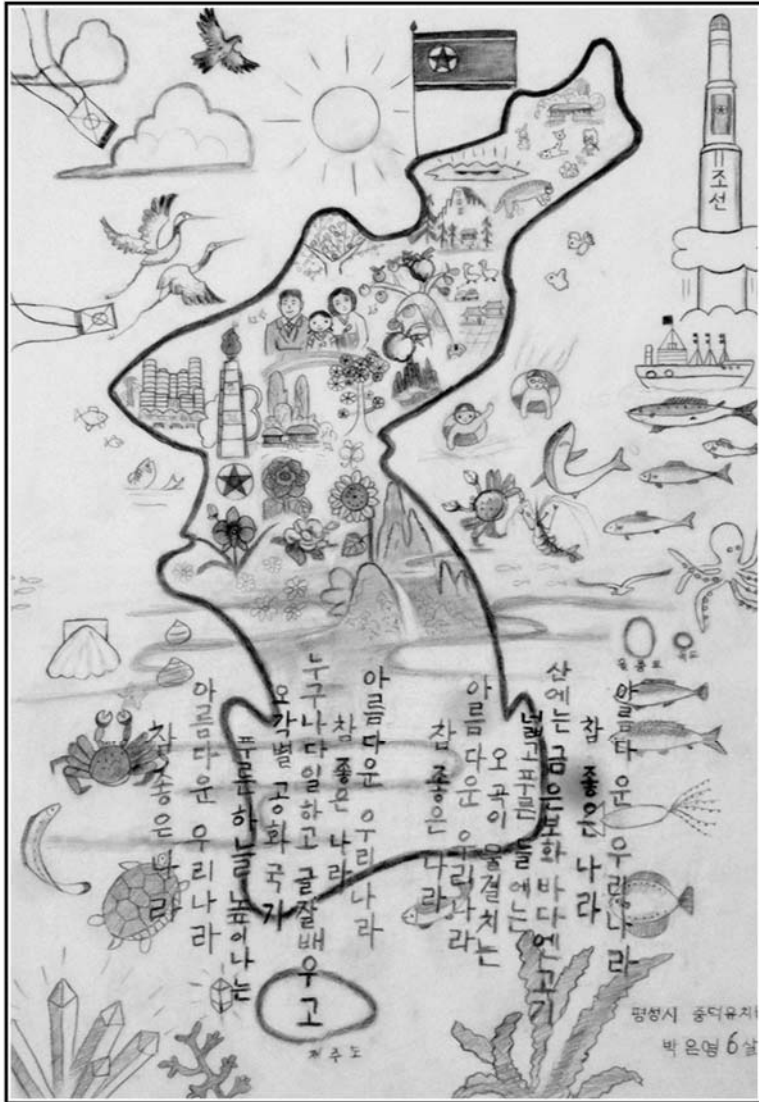 조선
울릉도
독도
아름다운 우리나라
참 좋은 나라
산에는 금은보화 바다엔고기
넓고푸른 들에는
오곡이 물결치는
아름다운 우리나라
참 좋은나라
아름다운 우리나라
참 좋은 나라
누구나다일하고 글잘배우고
오각별 공화국기
푸른하늘높이나는
아름다운 우리나라
참 좋은나라
제주도
평성시 중덕유치
박은영 6살